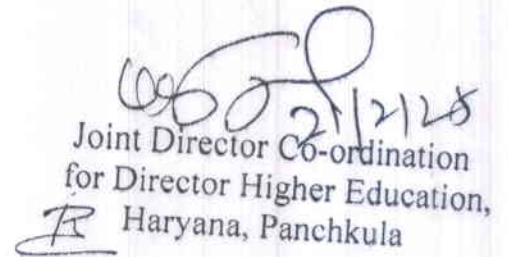 21/2/25
Joint Director Co-ordination
for Director Higher Education,
Haryana, Panchkula